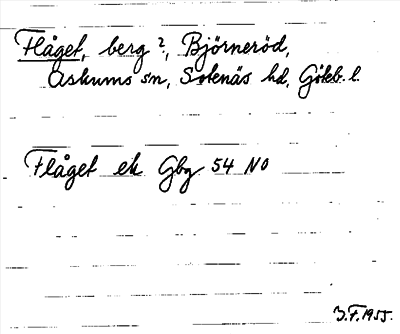 Flåget, berg ?, Björneröd,
Askums sn, Sotenäs hd, Göteb. l.
Flåget ek Gbg 54 NO
J.F. 1955.